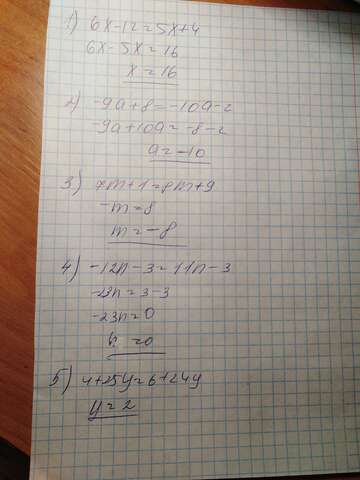 1) 6x-12=5x+4
6x-5x=16
x=16
2) -9a+8=-10a-2
-9a+10a=-8-2
a=-10
3) 7m+1=8m+9
-m=8
m=-8
4) -12n-3=11n-3
-23n=3-3
-23n=0
n=0
5) 4+25y=6+24y
y=2